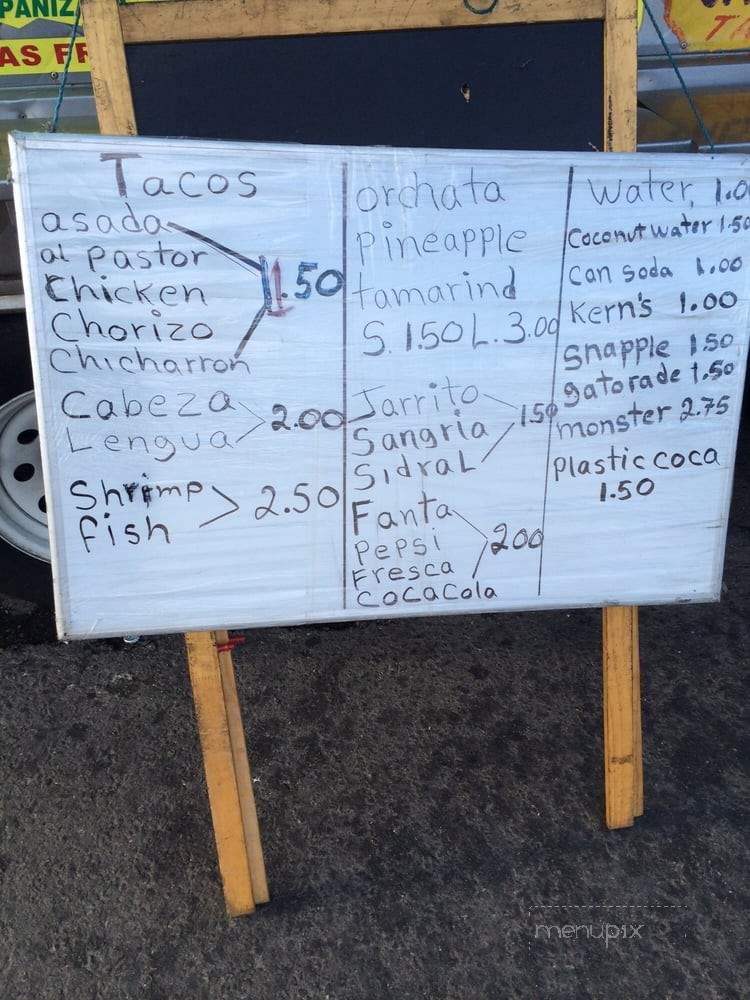 PANIZ
AS FR
Tacos
asada
al pastor
Chicken
Chorizo
Chicharron
1.50
Cabeza
Lengua
2.00
Shrimp
fish
> 2.50
orchata
Pineapple
tamarind
S. 1.50 L. 3.00
Jarrito
Sangria
Sidral
1.50
Fanta
Pepsi
Fresca
CocaCola
200
Water, 1.0
Coconut water 1.50
Can soda 1.00
Kern's 1.00
Snapple 1.50
gatorade 1.50
monster 2.75
Plastic coca
1.50
menupix